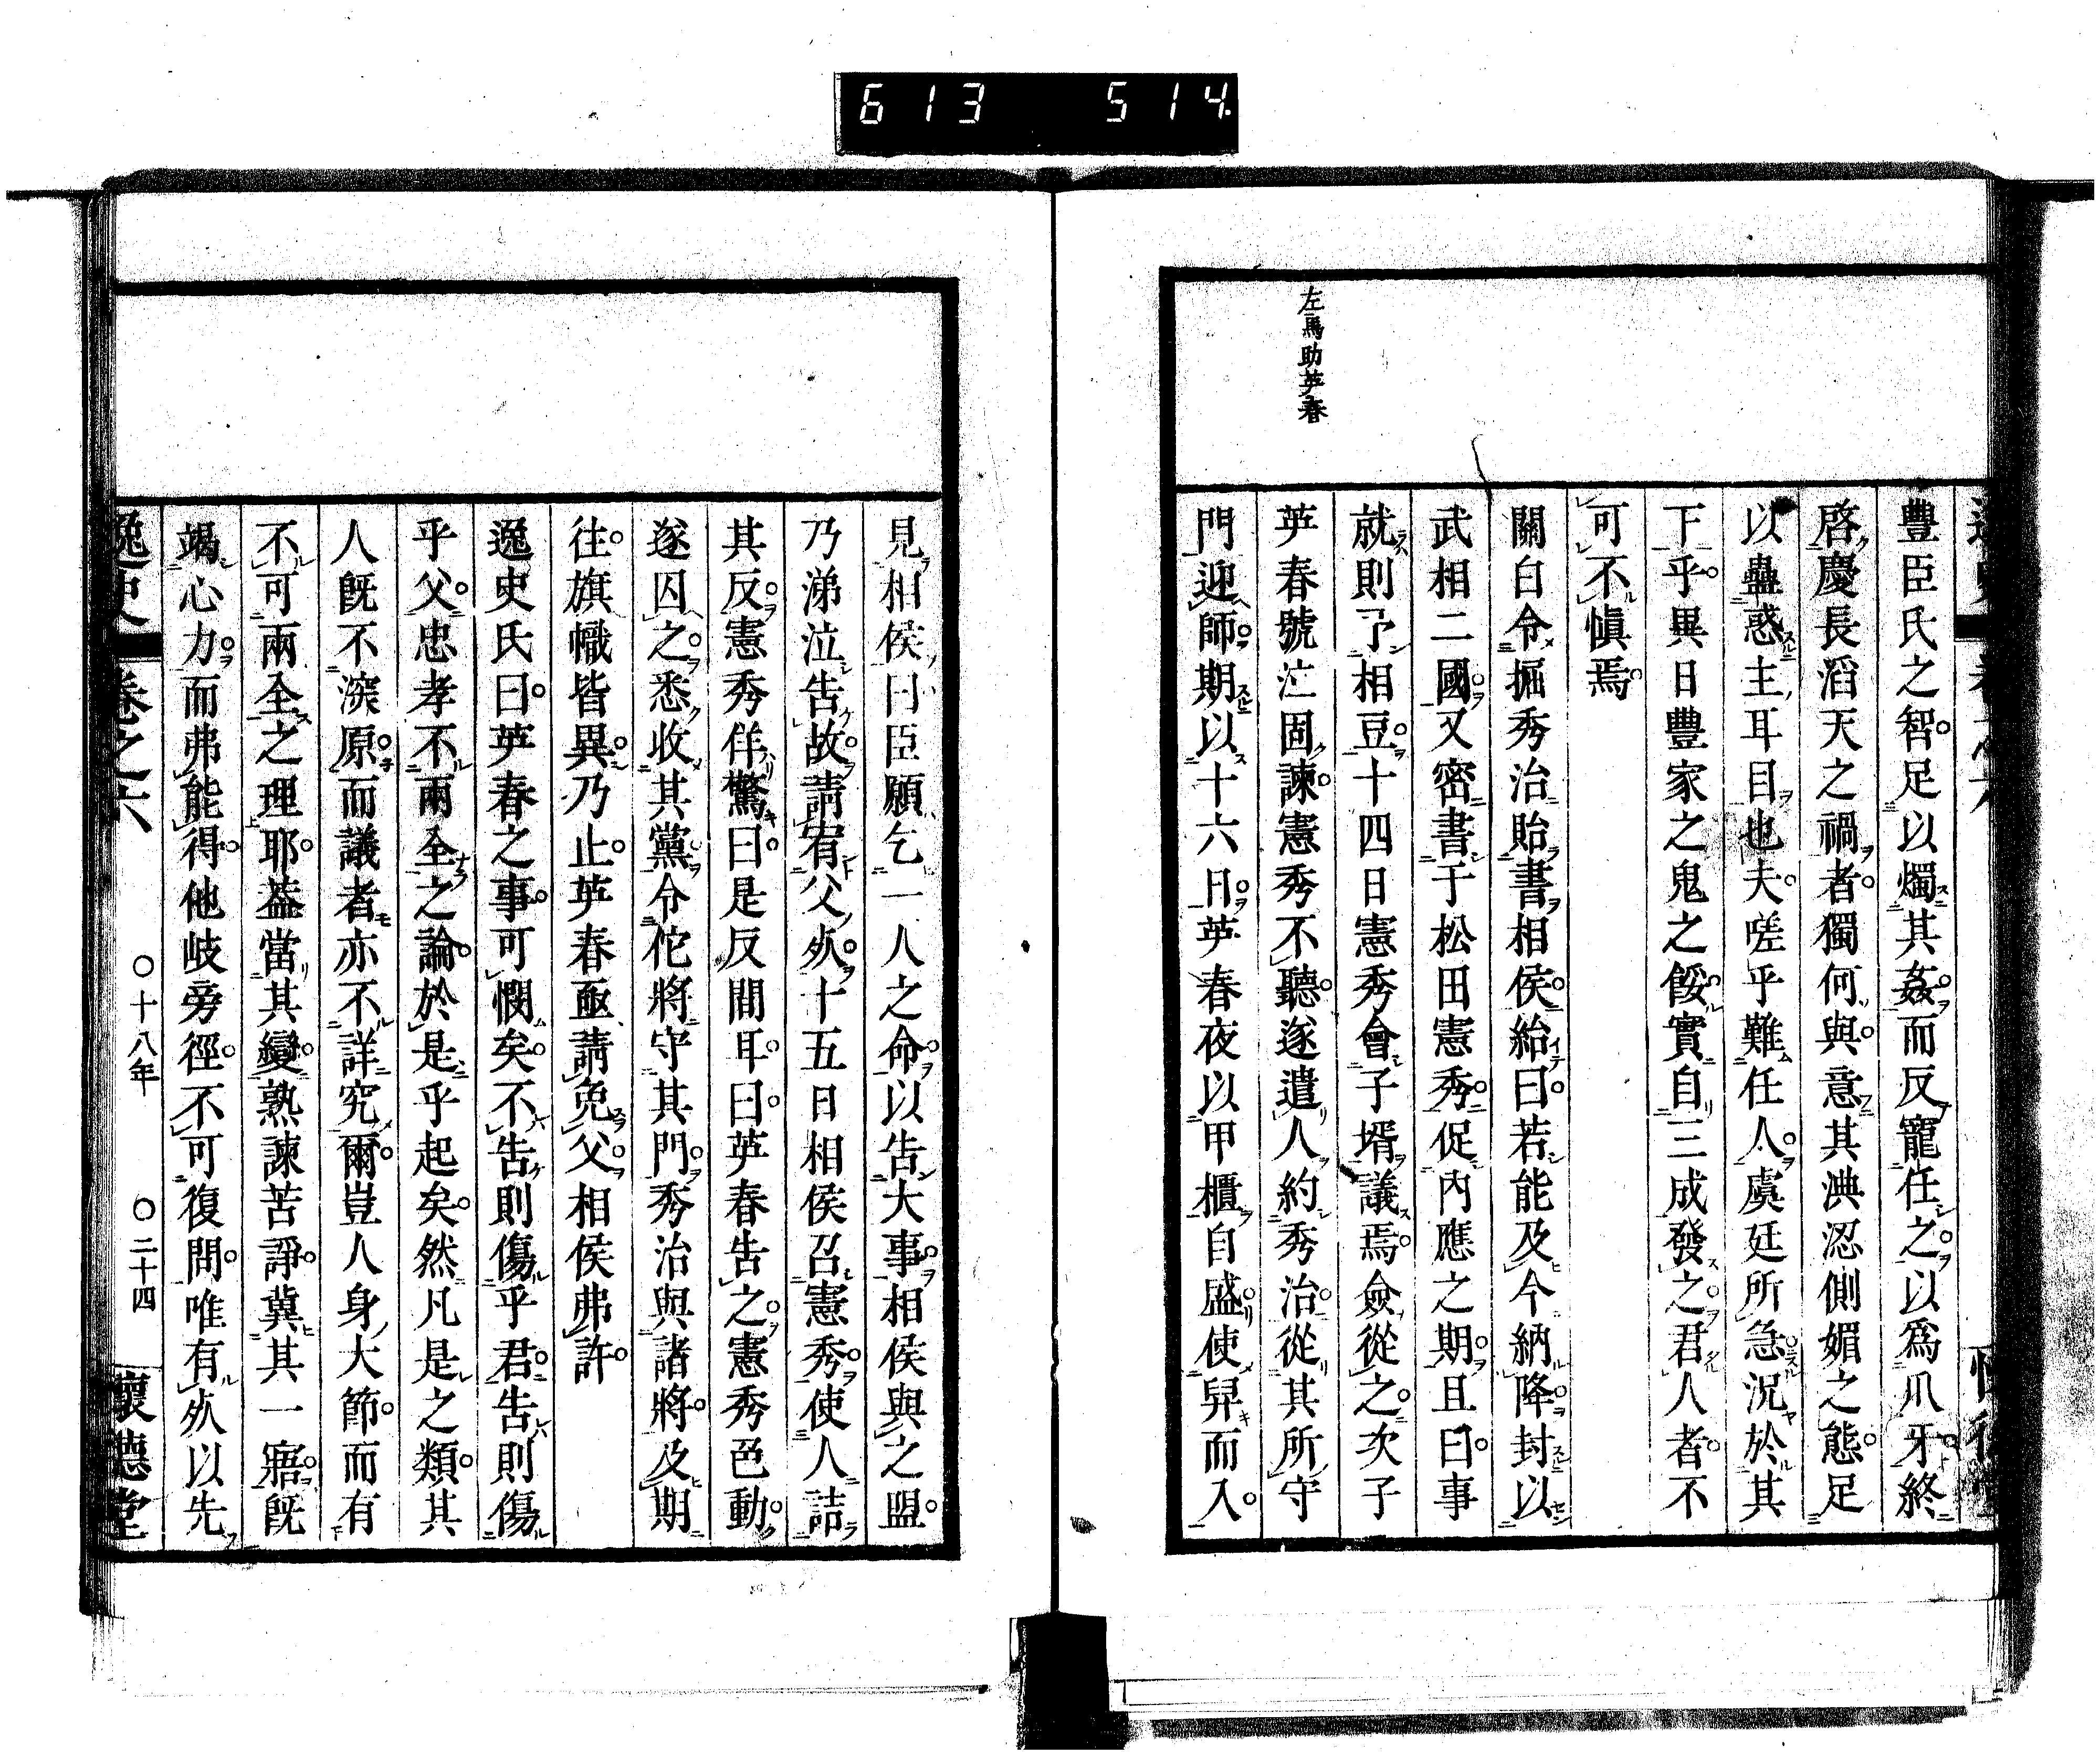 613 514
左馬助英春
豊臣氏之智足以燭其姦而反寵任之以爲爪牙終
啓慶長滔天之禍者獨何與意其淟涊側媚之態足
以蠱惑主耳目也夫嗟乎難任人虞廷所急況於其
下乎異日豐家之鬼之餒實自三成發之君人者不
可不愼焉
關白令掘秀治貽書相侯紿曰若能及今納降封以
武相二國又密書于松田憲秀促內應之期且曰事
就則予相豆十四日憲秀會子壻議焉僉從之次子
英春號泣固諫憲秀不聽遂遣人約秀治從其所守
門迎師期以十六日英春夜以甲櫃自盛使舁而入
見相侯曰臣願乞一人之命以告大事相侯與之盟
乃涕泣告故請宥父死十五日相侯召憲秀使人詰
其反憲秀佯驚曰是反間耳曰英春告之憲秀色動
遂囚之悉收其黨令佗將守其門秀治與諸將及期
往旗幟皆異乃止英春亟請免父相侯弗許
逸史氏曰英春之事可憫矣不告則傷乎君告則傷
乎父忠孝不兩全之論於是乎起矣然凡是之類其
人既不深原而議者亦不詳究爾豈人身大節而有
不可兩全之理耶蓋當其變熟諫苦諍冀其一寤既
竭心力而弗能得他岐旁徑不可復問唯有死以先
逸史 卷之六 ○十八年 ○二十四 懷德堂